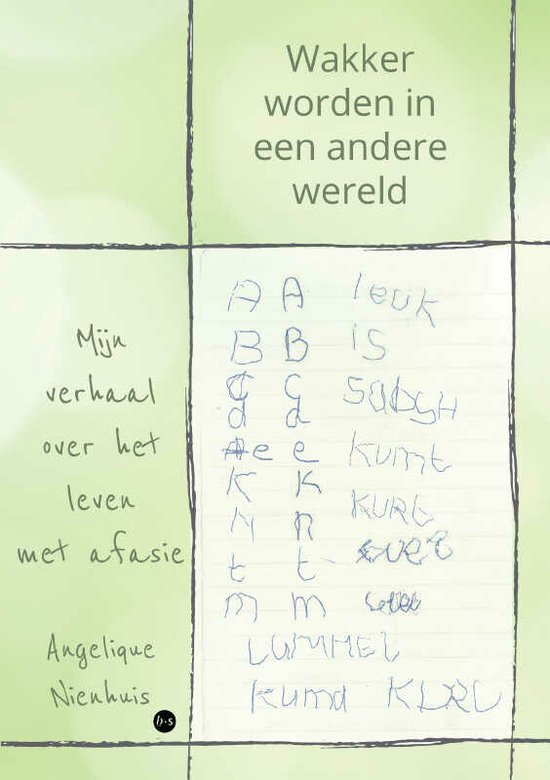 Wakker
worden in
een andere
wereld
Mijn
verhaal
over het
leven
met afasie
Angelique
Nienhuis
b·s
A A leuk
B B is
C C
d d
e e kumt
K K
N n KURt
t t
m m
LUMMEL
kuma